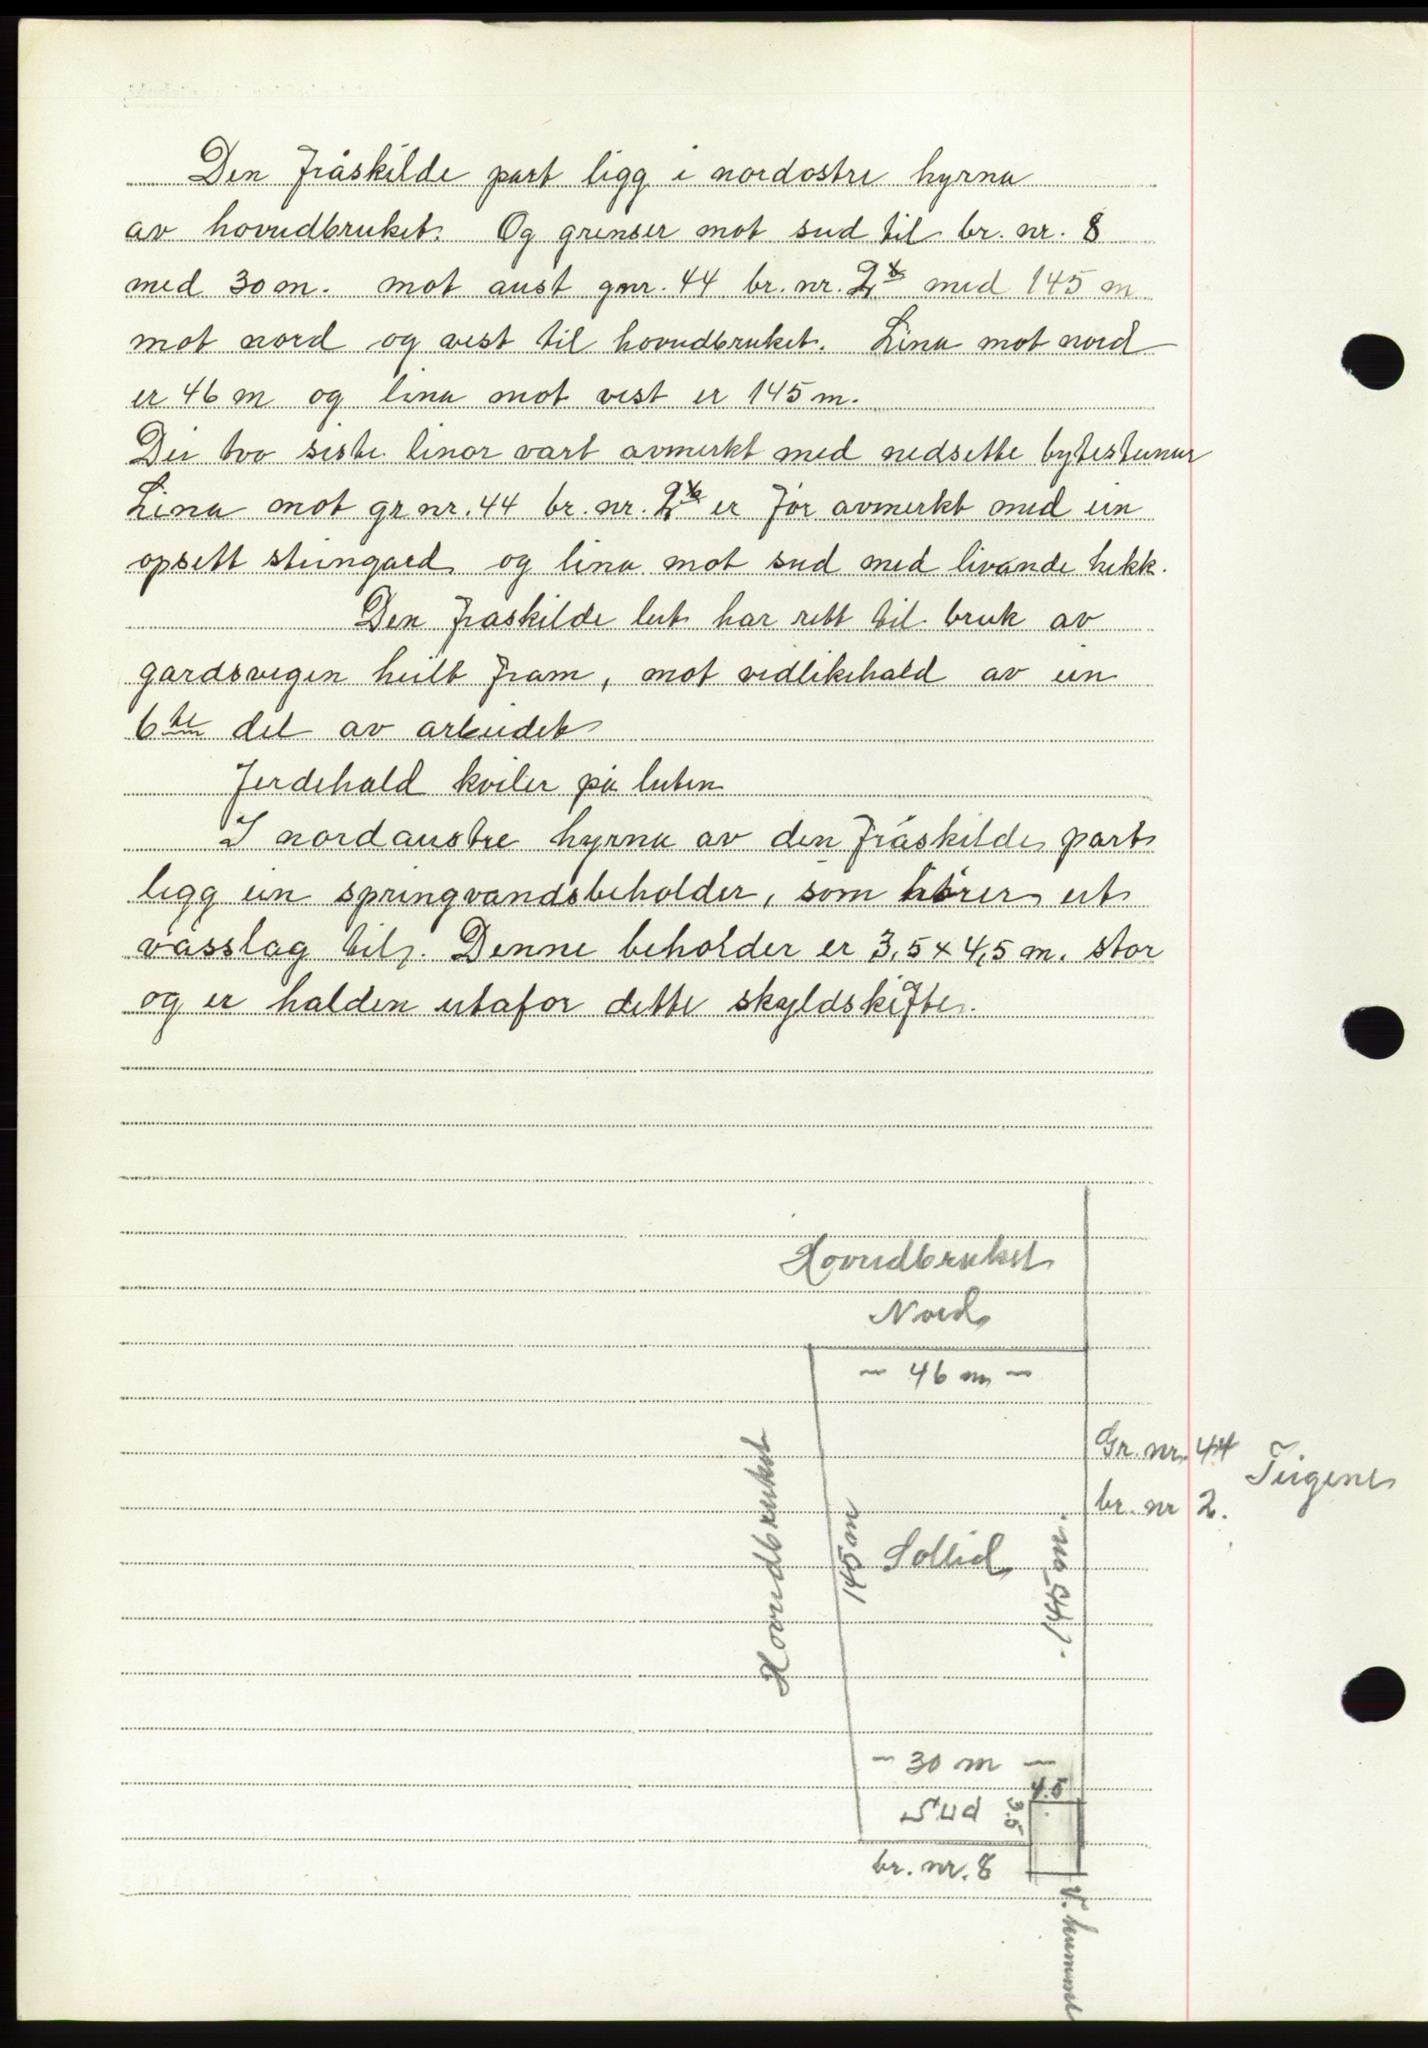 Den fråskilde part ligg i nordostre hyrna
av hovudbruket. Og grenser mot sud til br. nr. 8
med 30 m. mot aust gnr. 44 br. nr. 2 med 145 m
mot nord og vest til hovudbruket. Lina mot nord
er 46 m og lina mot vest er 145 m.
Dei tvo siste linor vart avmerkt med nedsette bytesteinar
Lina mot gr nr. 44 br. nr. 2 er før avmerkt med ein
opsett steingard og lina mot sud med livande hekk.
Den fraskilde lut har rett til bruk av
gardsvegen heilt fram, mot vedlikehald av ein
6te del av arbeidet
Jerdehald kviler på luten
I nordaustre hyrna av den fråskilde part
ligg ein springvandsbeholder, som hörer eit
vasslag til. Denne beholder er 3,5 x 4,5 m. stor
og er halden utafor dette skyldskifte.
Hovudbruket
Nord
- 46 m -
Gr. nr. 44
Teigene
br. nr 2.
Hovudbruket
145 m
Sollid
145 m.
- 30 m -
4.5
3.5
Sud
br. nr. 8
V. kummel